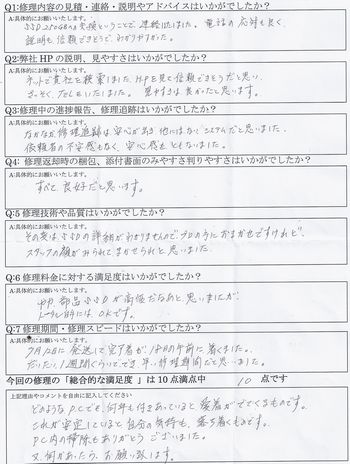 Q1:修理内容の見積・連絡・説明やアドバイスはいかがでしたか?
A:具体的にお願いいたします。
SSD 250GBの交換ということで、連絡はしました。電話の応対も良く、
説明も信頼できそうで、わかりやすかった。
Q2:弊社 HP の説明、見やすさはいかがでしたか?
A:具体的にお願いいたします。
ネットで貴社を検索しました。HPを見て信頼できそうだと思い、
さっそく、TELをいたしました。見やすさは良かったと思います。
Q3:修理中の進捗報告、修理追跡はいかがでしたか?
A:具体的にお願いいたします。
なかなか修理追跡は安心がある他にはないシステムだと思いました。
依頼者の不安感もなく、安心感をともないました。
Q4: 修理返却時の梱包、添付書面のみやすさ判りやすさはいかがでしたか?
A:具体的にお願いいたします。
すべて良好だと思います。
Q:5 修理技術や品質はいかがでしたか?
A:具体的にお願いいたします。
その実はSSDの詳細がわかりませんので、プロの方におまか也ですけれど、
スタッフの顔がみられてまかせられると思いました。
Q:6 修理料金に対する満足度はいかがでしたか?
A:具体的にお願いいたします。
部品SSDが高価だなあと、思いましたが、
トータル的には、OKです。
Q:7 修理期間・修理スピードはいかがでしたか?
A:具体的にお願いいたします。
7月10日に発送して完了品が18日の午前に着きました。
だいたい1週間くらいででき、早い修理期間だと思いました。
今回の修理の「総合的な満足度」は 10 点満点中 10 点です
上記理由やコメントを自由に記入してください
どのようなPCでも何年も付きあっていると愛着がでてくるものです。
これが安定していると自分の気持も落ち着くものです。
PC内の掃除もありがとうございました。
又、何かあったら、お願い致します。